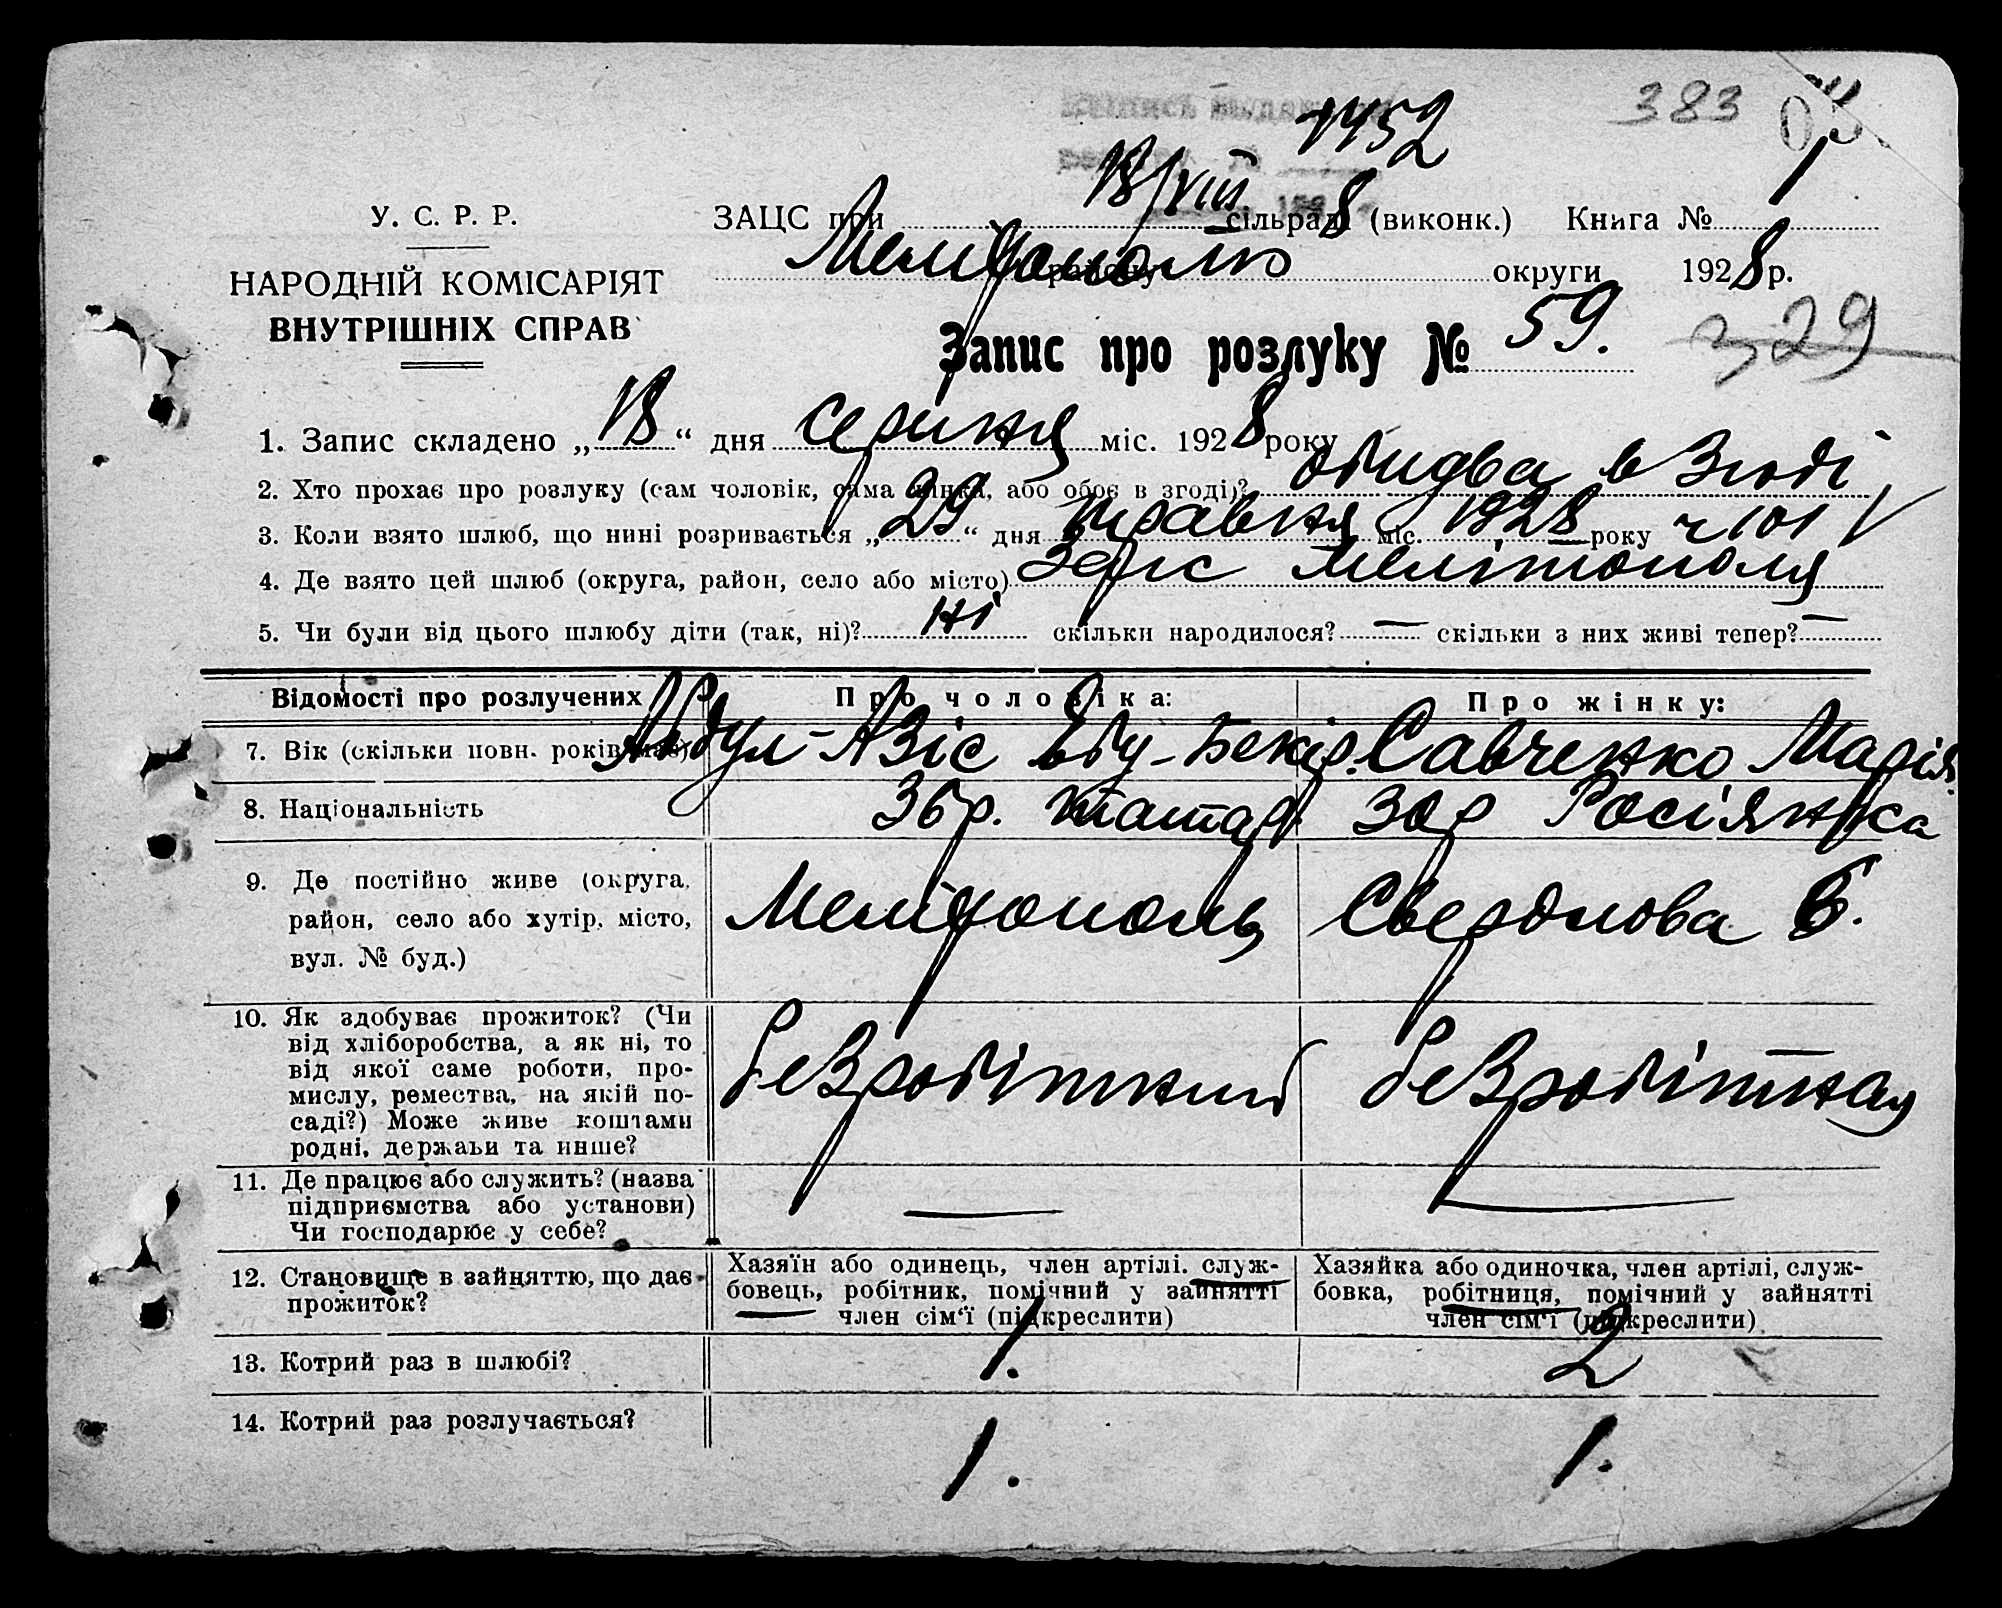 383
1452
18/VIII 8
1
У. С. Р. Р.
НАРОДНІЙ КОМІСАРІЯТ
ВНУТРІШНІХ СПРАВ
ЗАЦС при сільради (виконк.) Книга №
Мелітополю району округи 1928 р.
Запис про розлуку № 59.
329
1. Запис складено „18“ дня серпня міс. 1928 року
2. Хто прохає про розлуку (сам чоловік, сама жінка, або обоє в згоді)? обидва в згоді
3. Коли взято шлюб, що нині розривається „29“ дня травня міс. 1928 року ч 101
4. Де взято цей шлюб (округа, район, село або місто) Мелітополя
5. Чи були від цього шлюбу діти (так, ні)? ні скільки народилося? — скільки з них живі тепер? —
Відомості про розлучених
Про чоловіка:
Про жінку:
7. Вік (скільки повн. років має) Абдул-Азіс Абу-Бекір. Савченко Марія
8. Національність 36 р. татар. 30 р Росіянка
9. Де постійно живе (округа, район, село або хутір, місто, вул. № буд.)
Мелітополь Свердлова 6.
10. Як здобуває прожиток? (Чи
від хліборобства, а як ні, то
від якої саме роботи, про-
мислу, ремества, на якій по-
саді?) Може живе коштами
родні, держави та инше?
безробітний
безробітная
11. Де працює або служить? (назва
підприємства або установи)
Чи господарює у себе?
—
—
12. Становище в зайняттю, що дає
прожиток?
Хазяїн або одинець, член артілі. служ-
бовець, робітник, помічний у зайнятті
член сім'ї (підкреслити)
Хазяйка або одиночка, член артілі, служ-
бовка, робітниця, помічний у зайнятті
член сім'ї (підкреслити)
13. Котрий раз в шлюбі? 1. 2
14. Котрий раз розлучається? 1. 1.